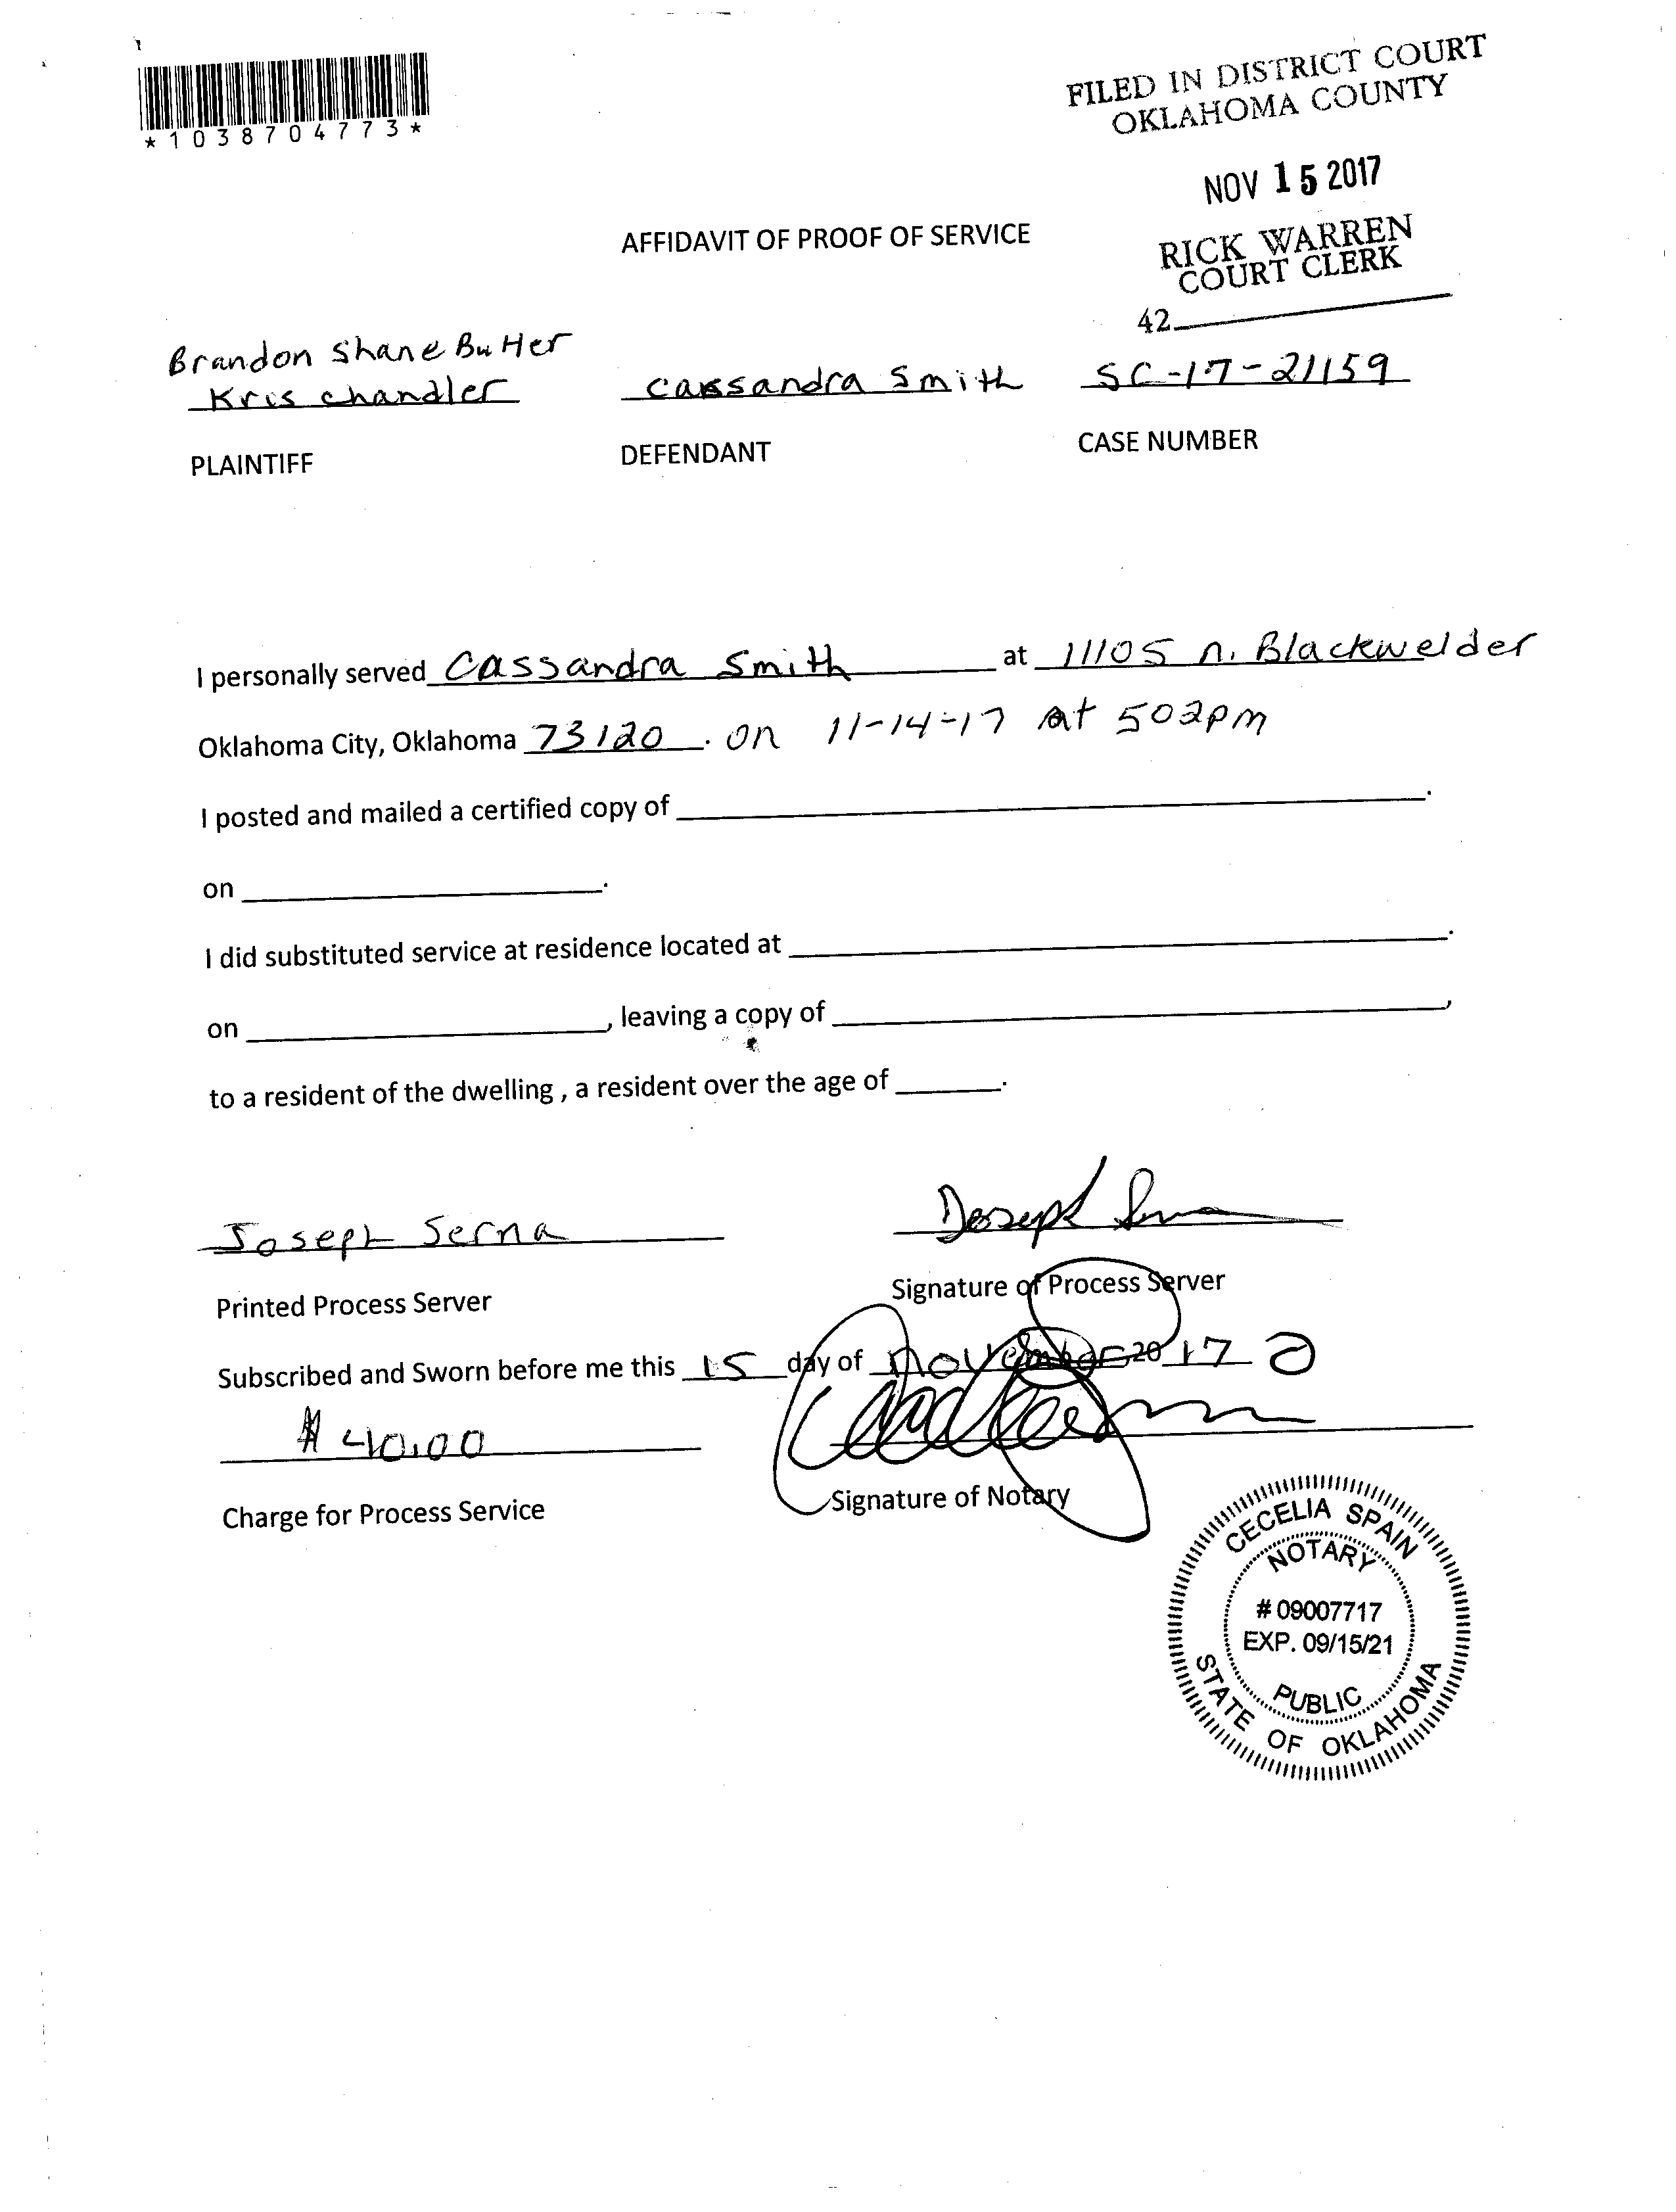 *1038704773*
FILED IN DISTRICT COURT
OKLAHOMA COUNTY
NOV 15 2017
RICK WARREN
COURT CLERK
42
AFFIDAVIT OF PROOF OF SERVICE
Brandon Shane Butler
Kris Chandler
Cassandra Smith
SC-17-21159
PLAINTIFF
DEFENDANT
CASE NUMBER
I personally served Cassandra Smith at 11105 n. Blackwelder
Oklahoma City, Oklahoma 73120. on 11-14-17 at 502pm
I posted and mailed a certified copy of .
on .
I did substituted service at residence located at .
on , leaving a copy of ,
to a resident of the dwelling , a resident over the age of .
Joseph Serna
Joseph Serna
Printed Process Server
Signature of Process Server
Subscribed and Sworn before me this 15 day of november 2017
$ 40.00
Charge for Process Service
Signature of Notary
CECELIA SPAIN
NOTARY
# 09007717
EXP. 09/15/21
PUBLIC
STATE OF OKLAHOMA